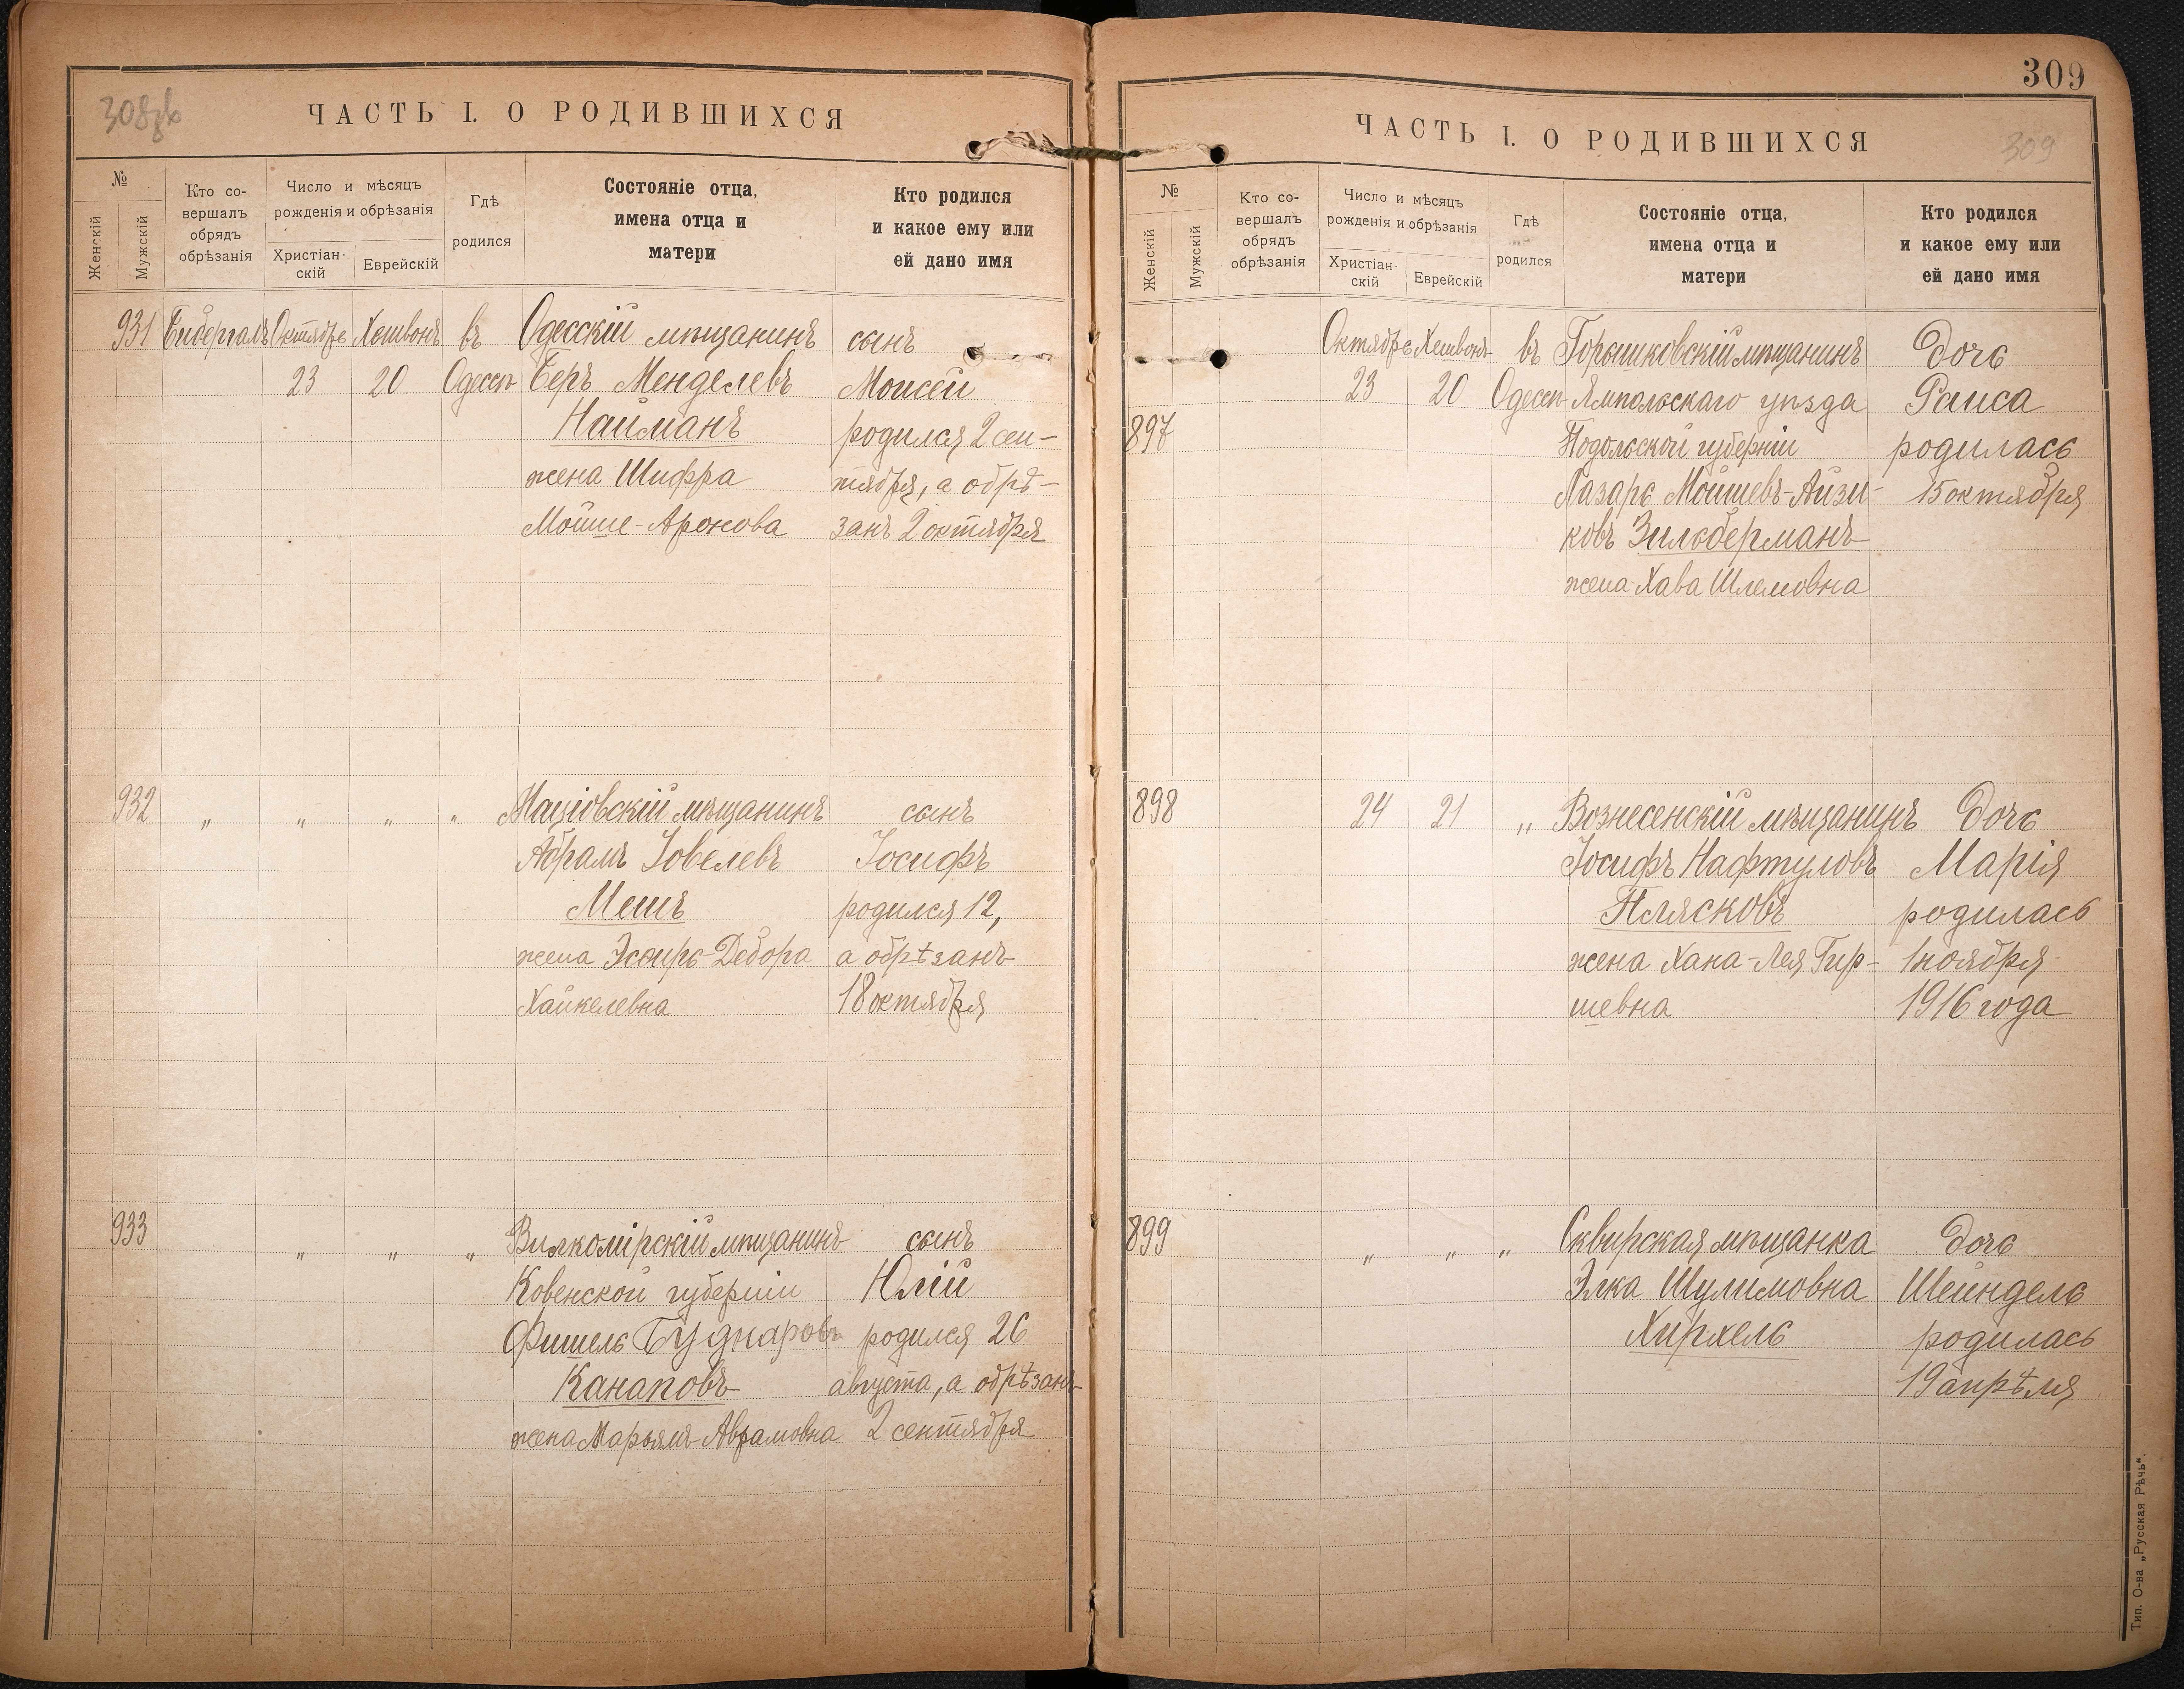 308
ЧАСТЬ I. О РОДИВШИХСЯ
№
Женскій
Мужскій
Кто со-
вершалъ
обрядъ
обрѣзанія
Число и мѣсяцъ
рожденія и обрѣзанія
Христіан-
скій
Еврейскій
Гдѣ
родился
Состояніе отца,
имена отца и
матери
Кто родился
и какое ему или
ей дано имя
931 Октябрь Хешвонъ въ Одесскій мѣщанинъ сынъ
23 20 Одессѣ Беръ Менделевъ Моисей
Найманъ родился 2 сен-
жена Шифра тября, а обрѣ-
Мойше-Аронова занъ 2 октября
932 „ „ „ „ мѣщанинъ сынъ
Абрамъ Іовелевъ Іосифъ
Мешъ родился 12,
жена Эсѳирь-Дебора а обрѣзанъ
Хайкелевна 18 октября
933 „ „ „ Вилкомірскій мѣщанинъ сынъ
Ковенской губерніи Юлій
Фишель родился 26
Канаповъ августа, а обрѣзанъ
жена Марьямъ Аврамовна 2 сентября
309
ЧАСТЬ I. О РОДИВШИХСЯ
309
№
Женскій
Мужскій
Кто со-
вершалъ
обрядъ
обрѣзанія
Число и мѣсяцъ
рожденія и обрѣзанія
Христіан-
скій
Еврейскій
Гдѣ
родился
Состояніе отца,
имена отца и
матери
Кто родился
и какое ему или
ей дано имя
Октябрь Хешвонъ въ Горышковскій мѣщанинъ дочь
23 20 Одессѣ Ямпольскаго уѣзда Раиса
897 Подольской губерніи родилась
Лазарь Мойшевъ-Айзи- 15 октября
ковъ Зильберманъ
жена Хава Шлемовна
898 24 21 „ Вознесенскій мѣщанинъ дочь
Іосифъ Нафтуловъ Марія
Плясковъ родилась
жена Хана-Лея Гир- 1 ноября
шевна 1916 года
899 „ „ „ Сквирская мѣщанка дочь
Элка Шулимовна Шейндель
Хирхель родилась
19 апрѣля
Тип. О-ва „Русская Рѣчь“.